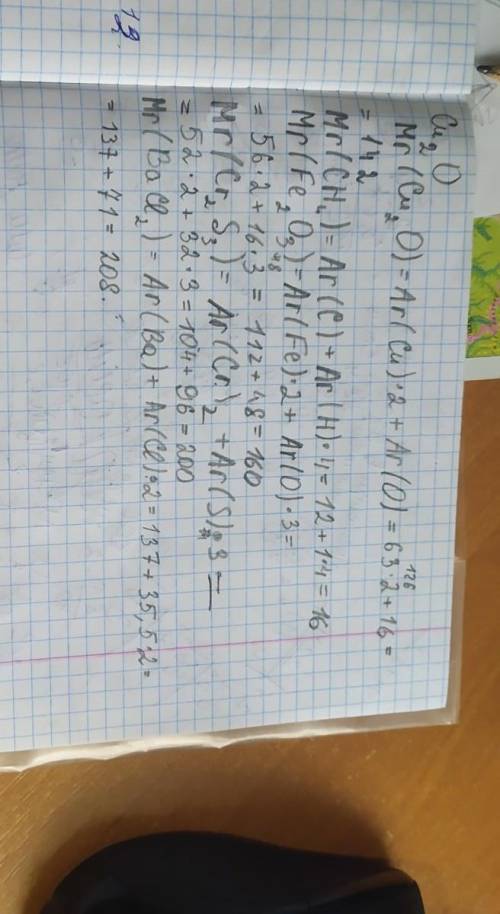 Cu₂O
Mr(Cu₂O)=Ar(Cu)·2+Ar(O)=63·2+16=
126
=142
Mr(CH₄)=Ar(C)+Ar(H)·4=12+1·4=16
Mr(Fe₂O₃)=Ar(Fe)·2+Ar(O)·3=
=56·2+16·3=112+48=160
48
Mr(Cr₂S₃)=Ar(Cr)₂+Ar(S)·3=
=52·2+32·3=104+96=200
Mr(BaCl₂)=Ar(Ba)+Ar(Cl)·2=137+35,5·2=
=137+71=208.
12